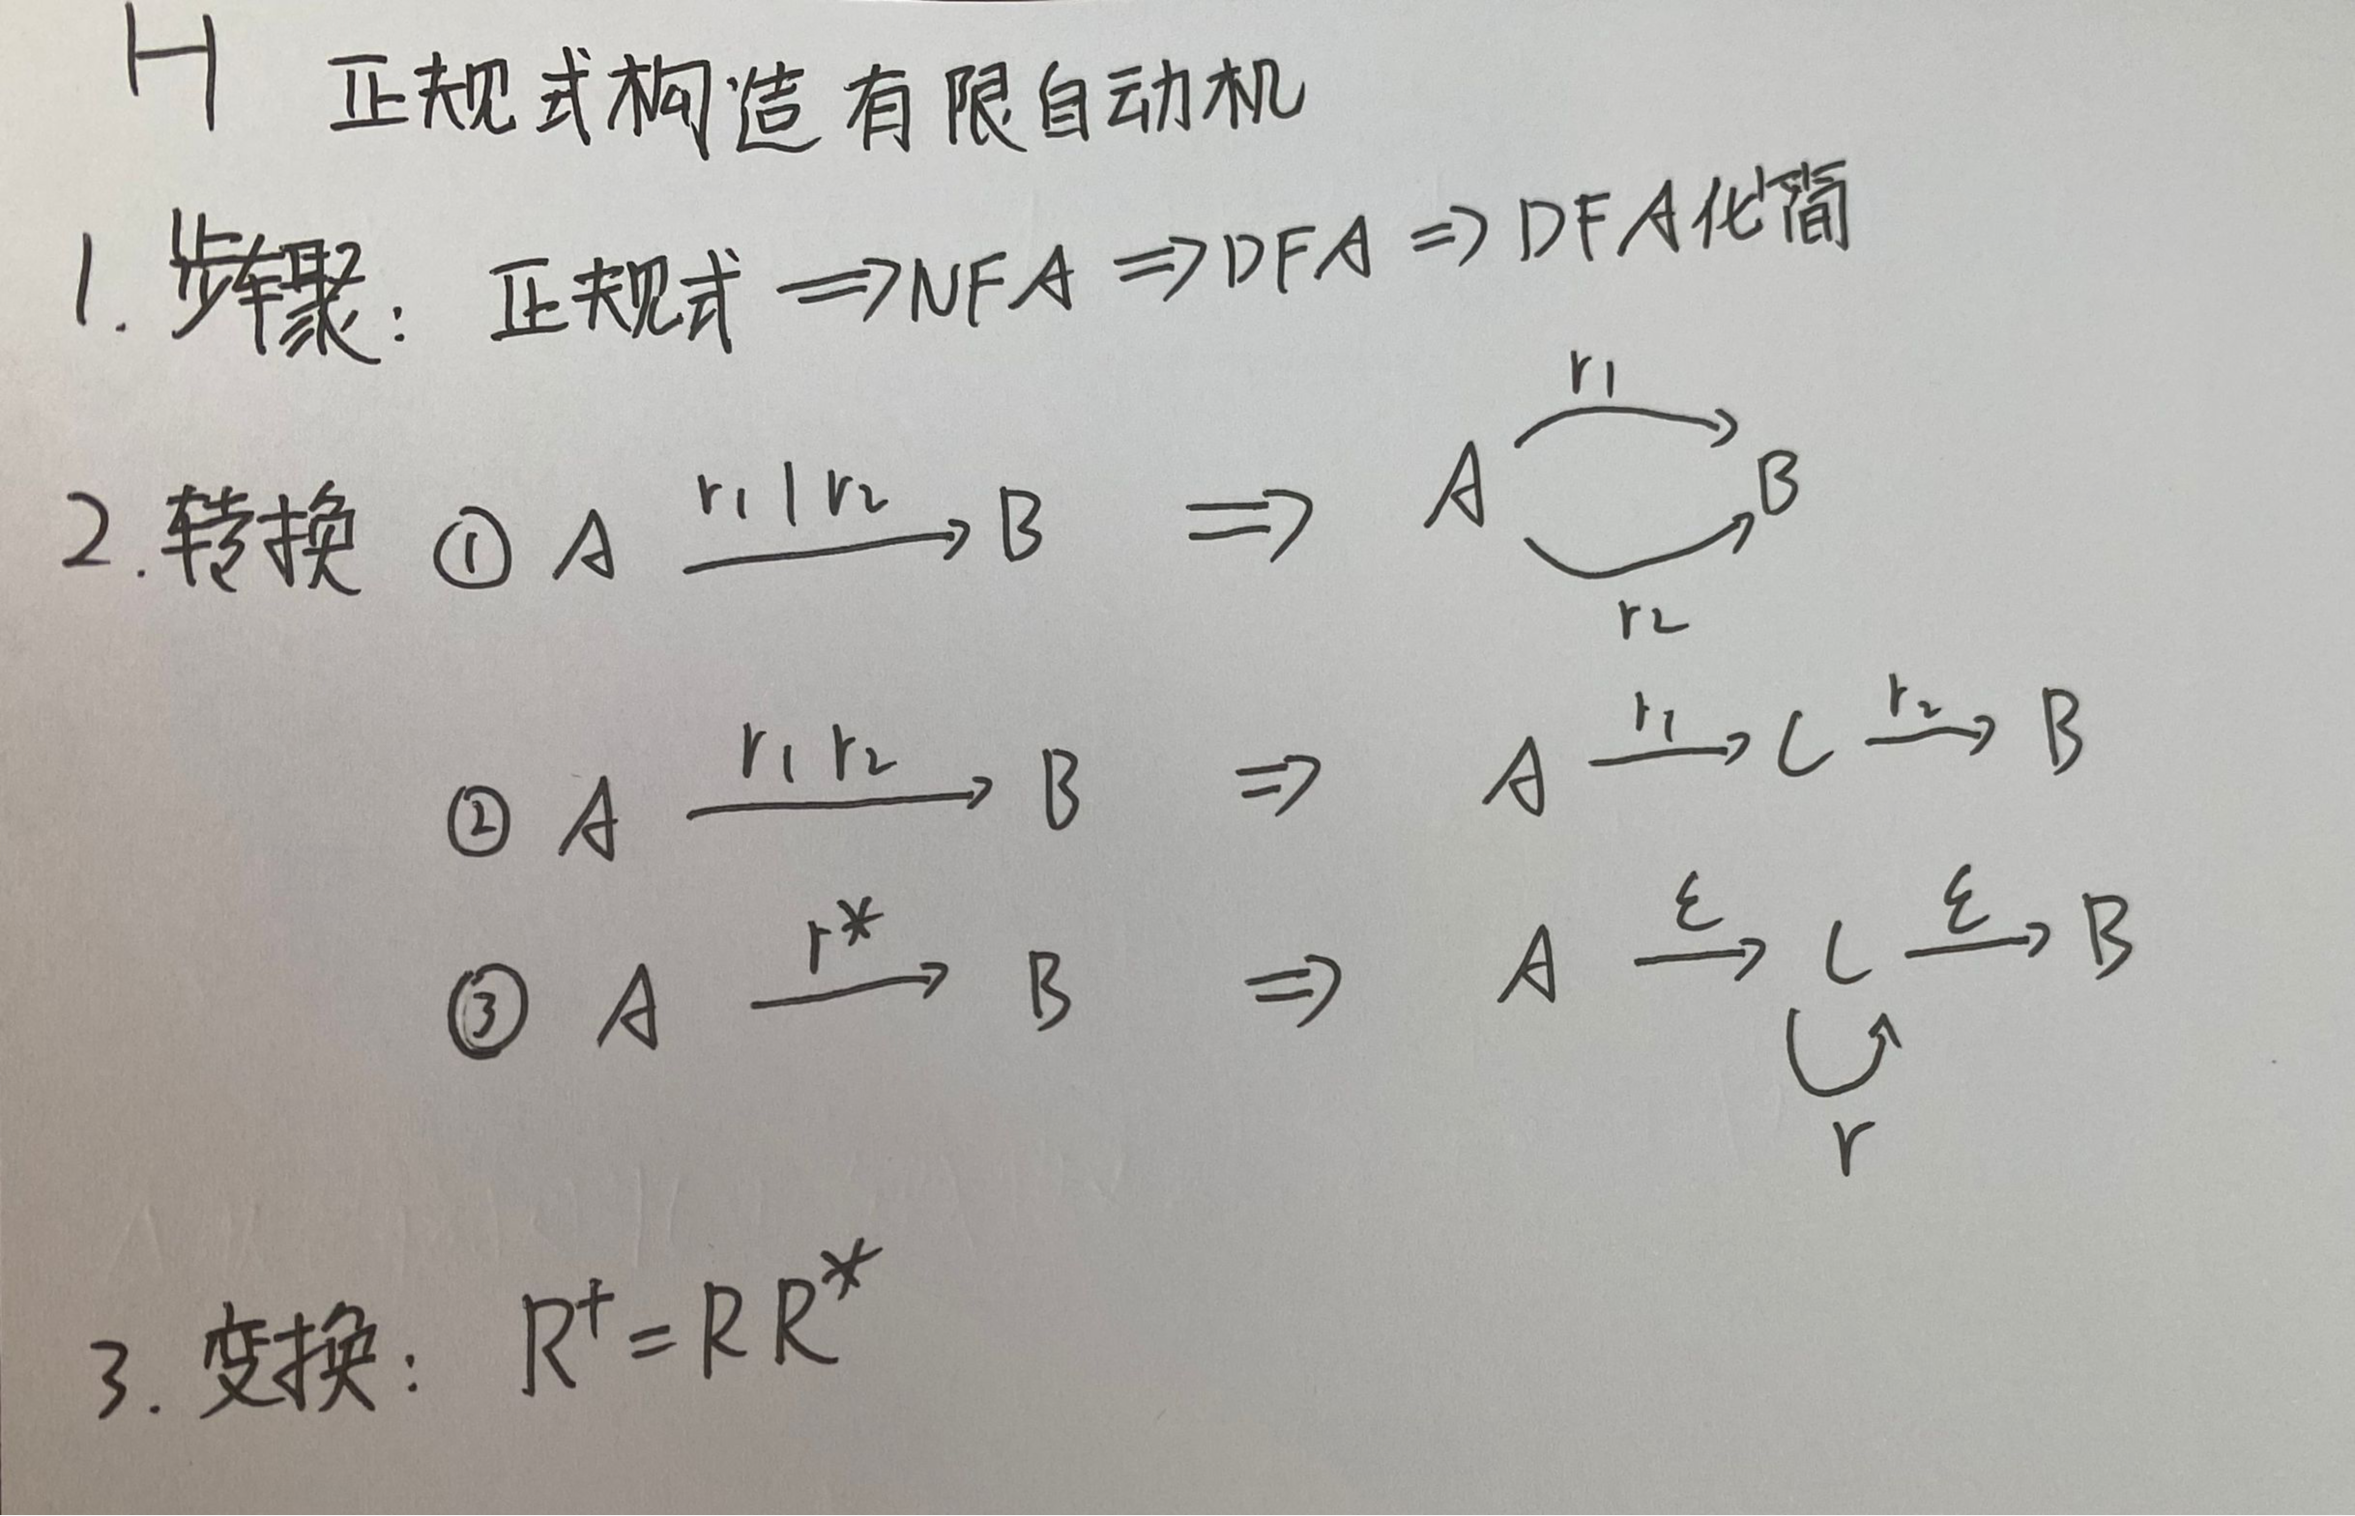 H 正规式构造有限自动机
1. 步骤: 正规式 ⇒ NFA ⇒ DFA ⇒ DFA化简
2. 转换 ① A r1|r2 → B ⇒ A r1 → B r2
② A r1 r2 → B ⇒ A r1 → C r2 → B
③ A r* → B ⇒ A ε → C ε → B
r
3. 变换: R⁺ = R R*